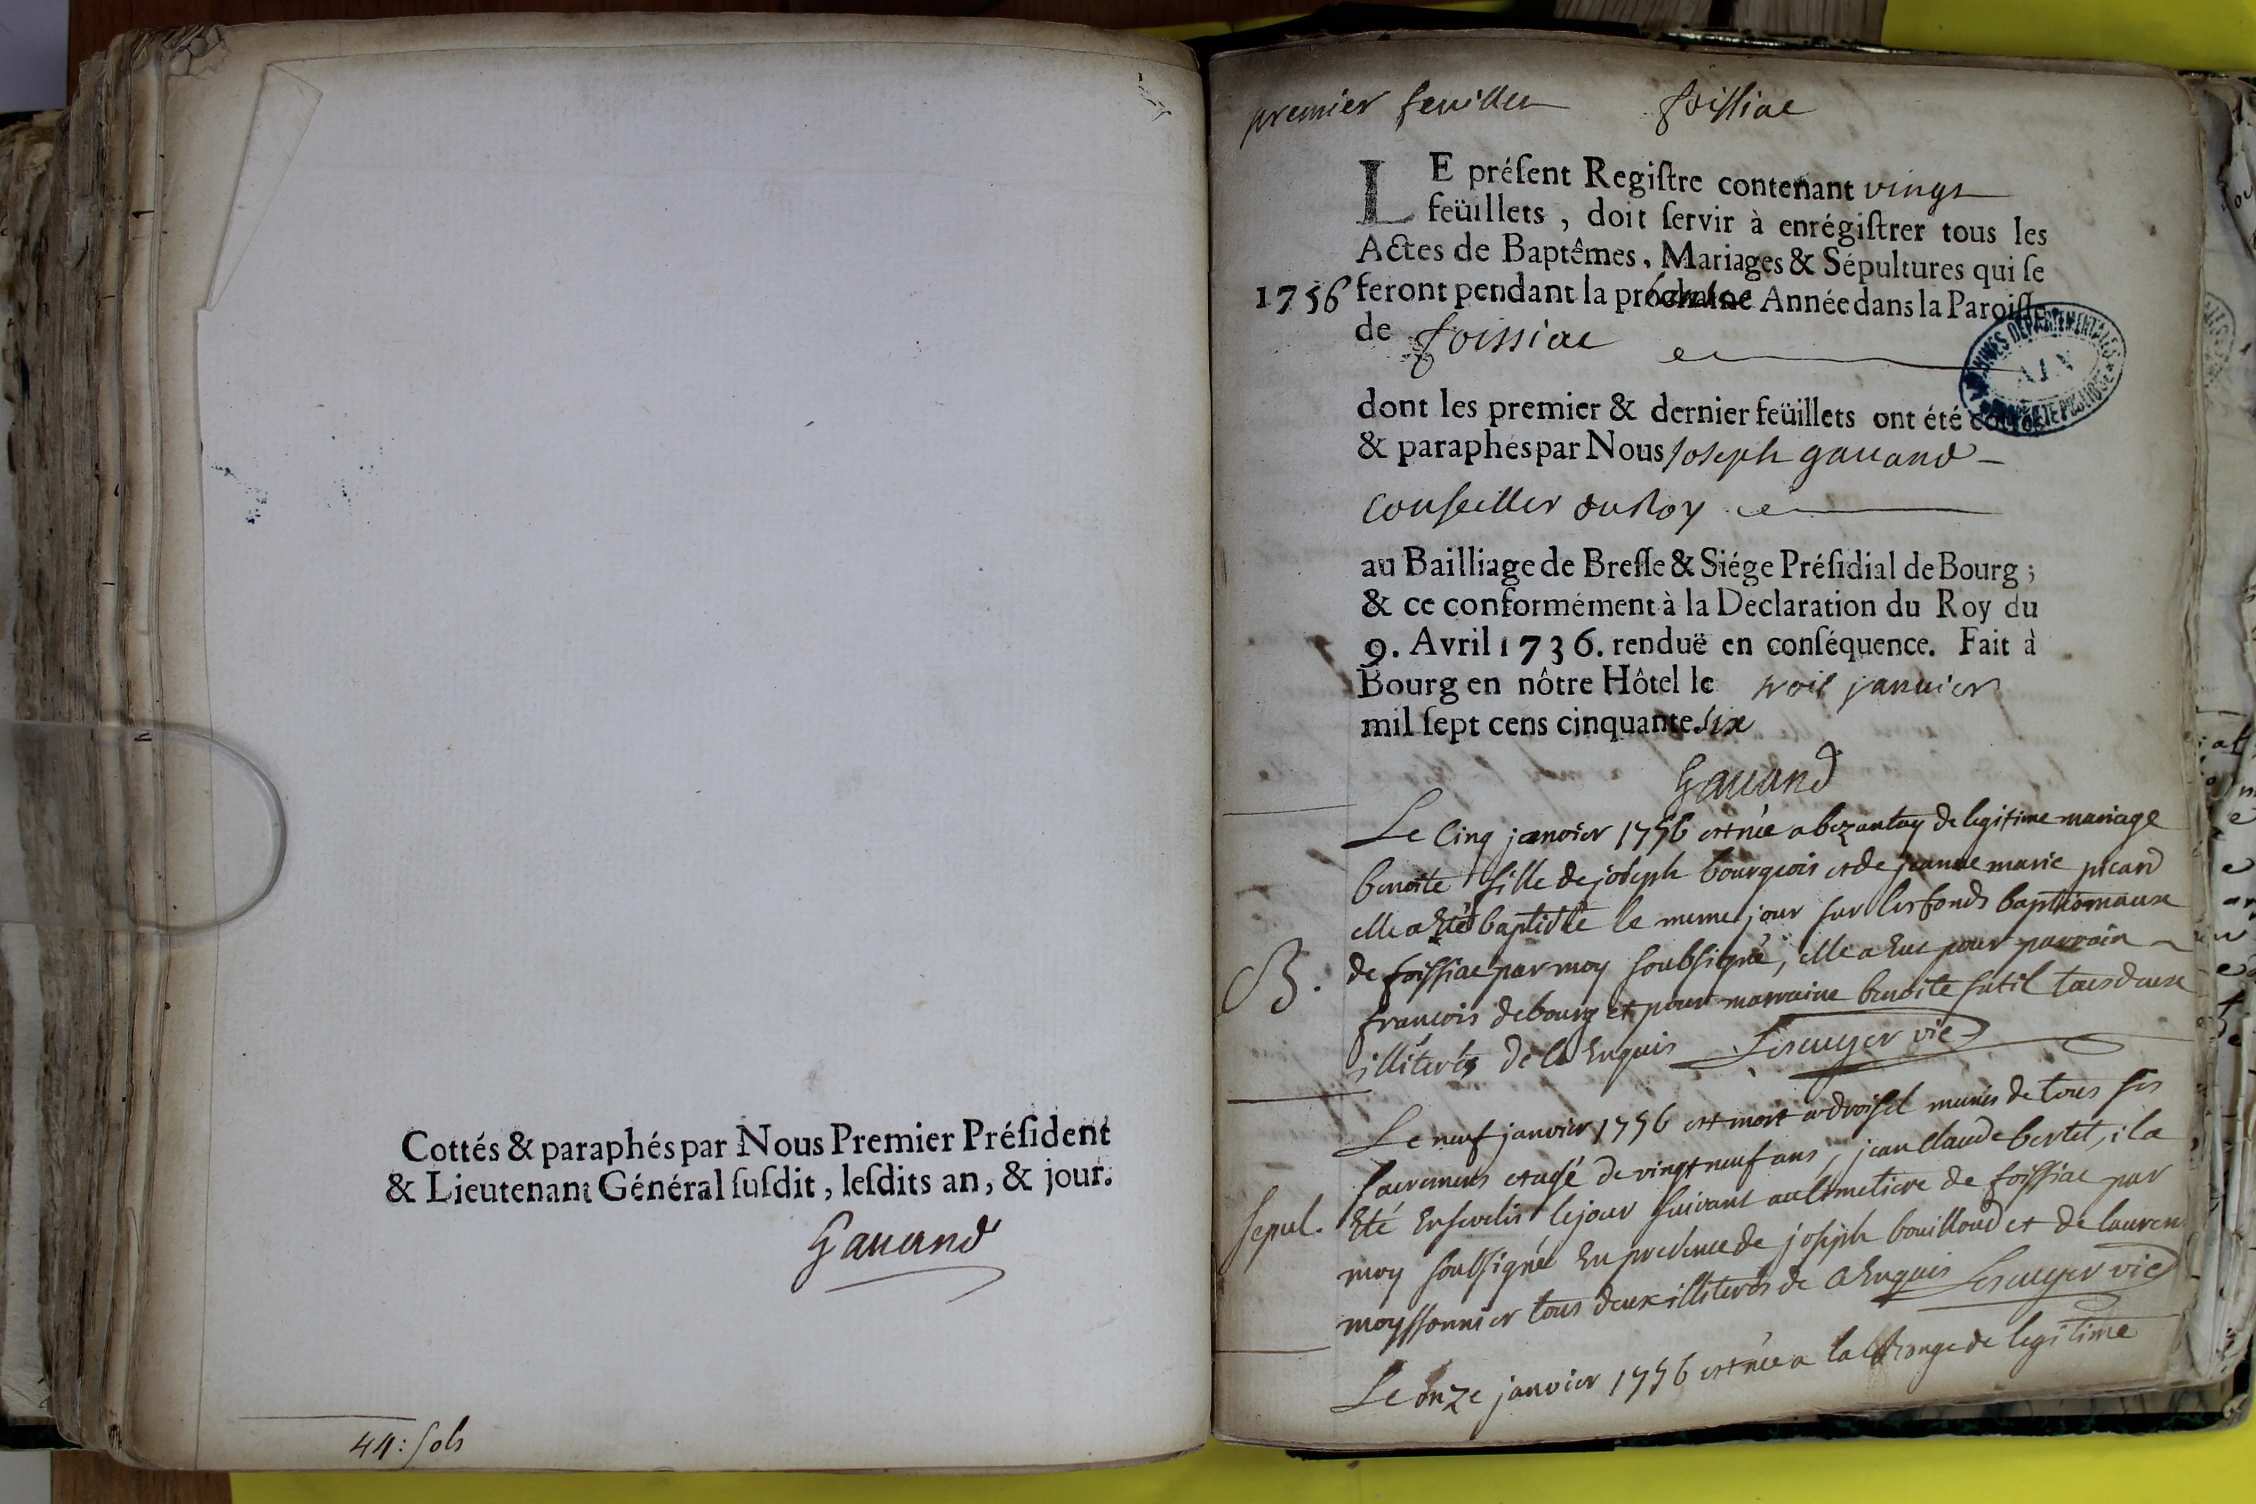 Cottés & paraphés par Nous Premier Préſident
& Lieutenant Général ſuſdit, leſdits an, & jour.
Gauand
44: sols
premier feuillet foissiac
LE préſent Regiſtre contenant vingt
feüillets, doit ſervir à enrégiſtrer tous les
Actes de Baptêmes, Mariages & Sépultures qui ſe
1756 feront pendant la Année dans la Paroiſſe
de foissiac
dont les premier & dernier feüillets ont été
& paraphés par Nous Joseph gauand
Conseiller du Roy
au Bailliage de Breſſe & Siége Préſidial de Bourg;
& ce conformément à la Declaration du Roy du
9. Avril 1736. renduë en conſéquence. Fait à
Bourg en nôtre Hôtel le trois januier
mil ſept cens cinquante six
Gauand
Le Cinq janvier 1756 est née a bezantay de legitime mariage
benoite fille de joseph bourgeois et de jeanne marie picard
elle a Eté baptisée le meme jour sur les fonds baptismaux
B. de foissiac par moy soubsigné, elle a Eue pour parrain
francois debourg et pour marraine benoite sutil tous deux
illiterés de ce Enquis Lescuyer vic
Le neuf janvier 1756 est mort a droisel munis de tous ses
sacremens et agé de vingt neuf ans, jean Claude bertet, il a
Sepul. Eté Ensevelis le jour suivant au Cimetiere de foissiac par
moy soubsigné En presence de joseph bouilloud et de lauren
moyssonnier tous deux illiterés de ce Enquis Lescuyer vic
Le onze janvier 1756 est née a la de legitime